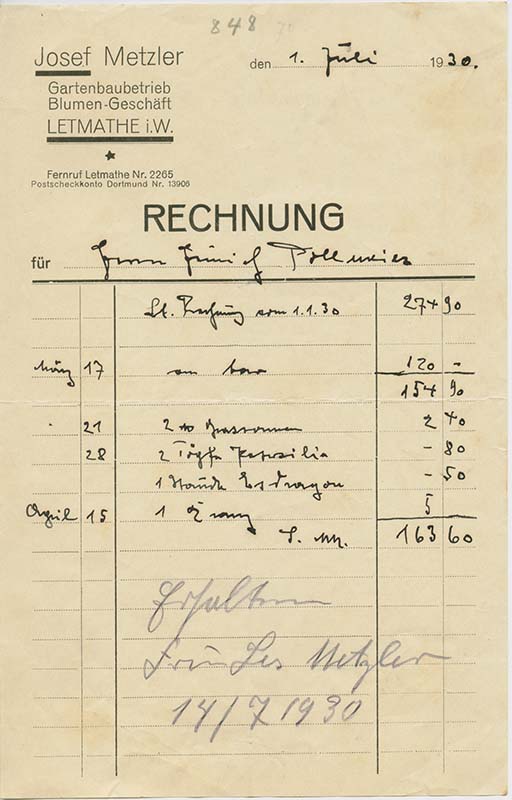 848
Josef Metzler
den 1. Juli 1930.
Gartenbaubetrieb
Blumen-Geschäft
LETMATHE i.W.
Fernruf Letmathe Nr. 2265
Postscheckkonto Dortmund Nr. 13906
RECHNUNG
für Herrn Pollmeier
Lt. Rechnung vom 1.1.30 274 90
März 17 an bar 120 -
154 90
" 21 2 2 40
28 2 Töpfe Petersilie - 80
1 Staude Esdragon - 50
April 15 1 Kranz 5
S. M. 163 60
Erhalten
Metzler
14/7 1930